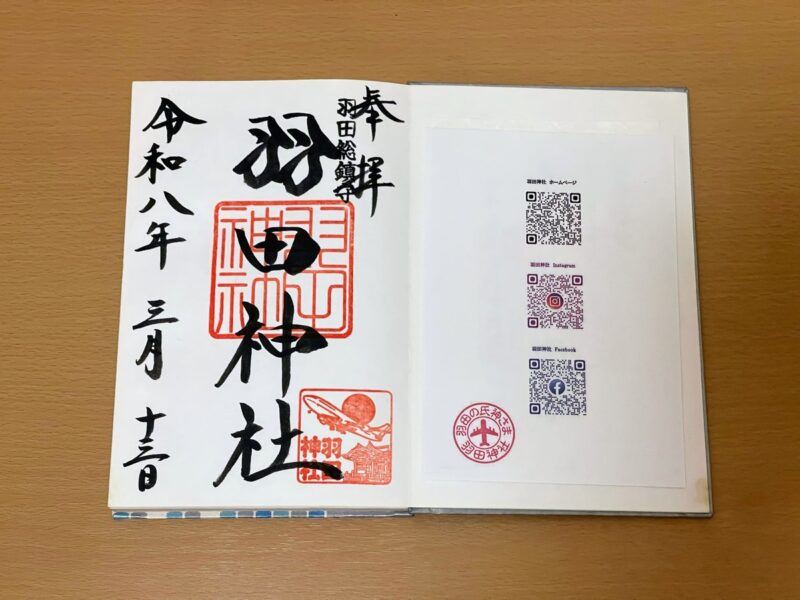 奉拝
羽田総鎮守
羽田神社
羽田
神社
羽田
神社
令和八年 三月 十三日
羽田神社 ホームページ
羽田神社 Instagram
羽田神社 Facebook
羽田の氏神さま
羽田神社